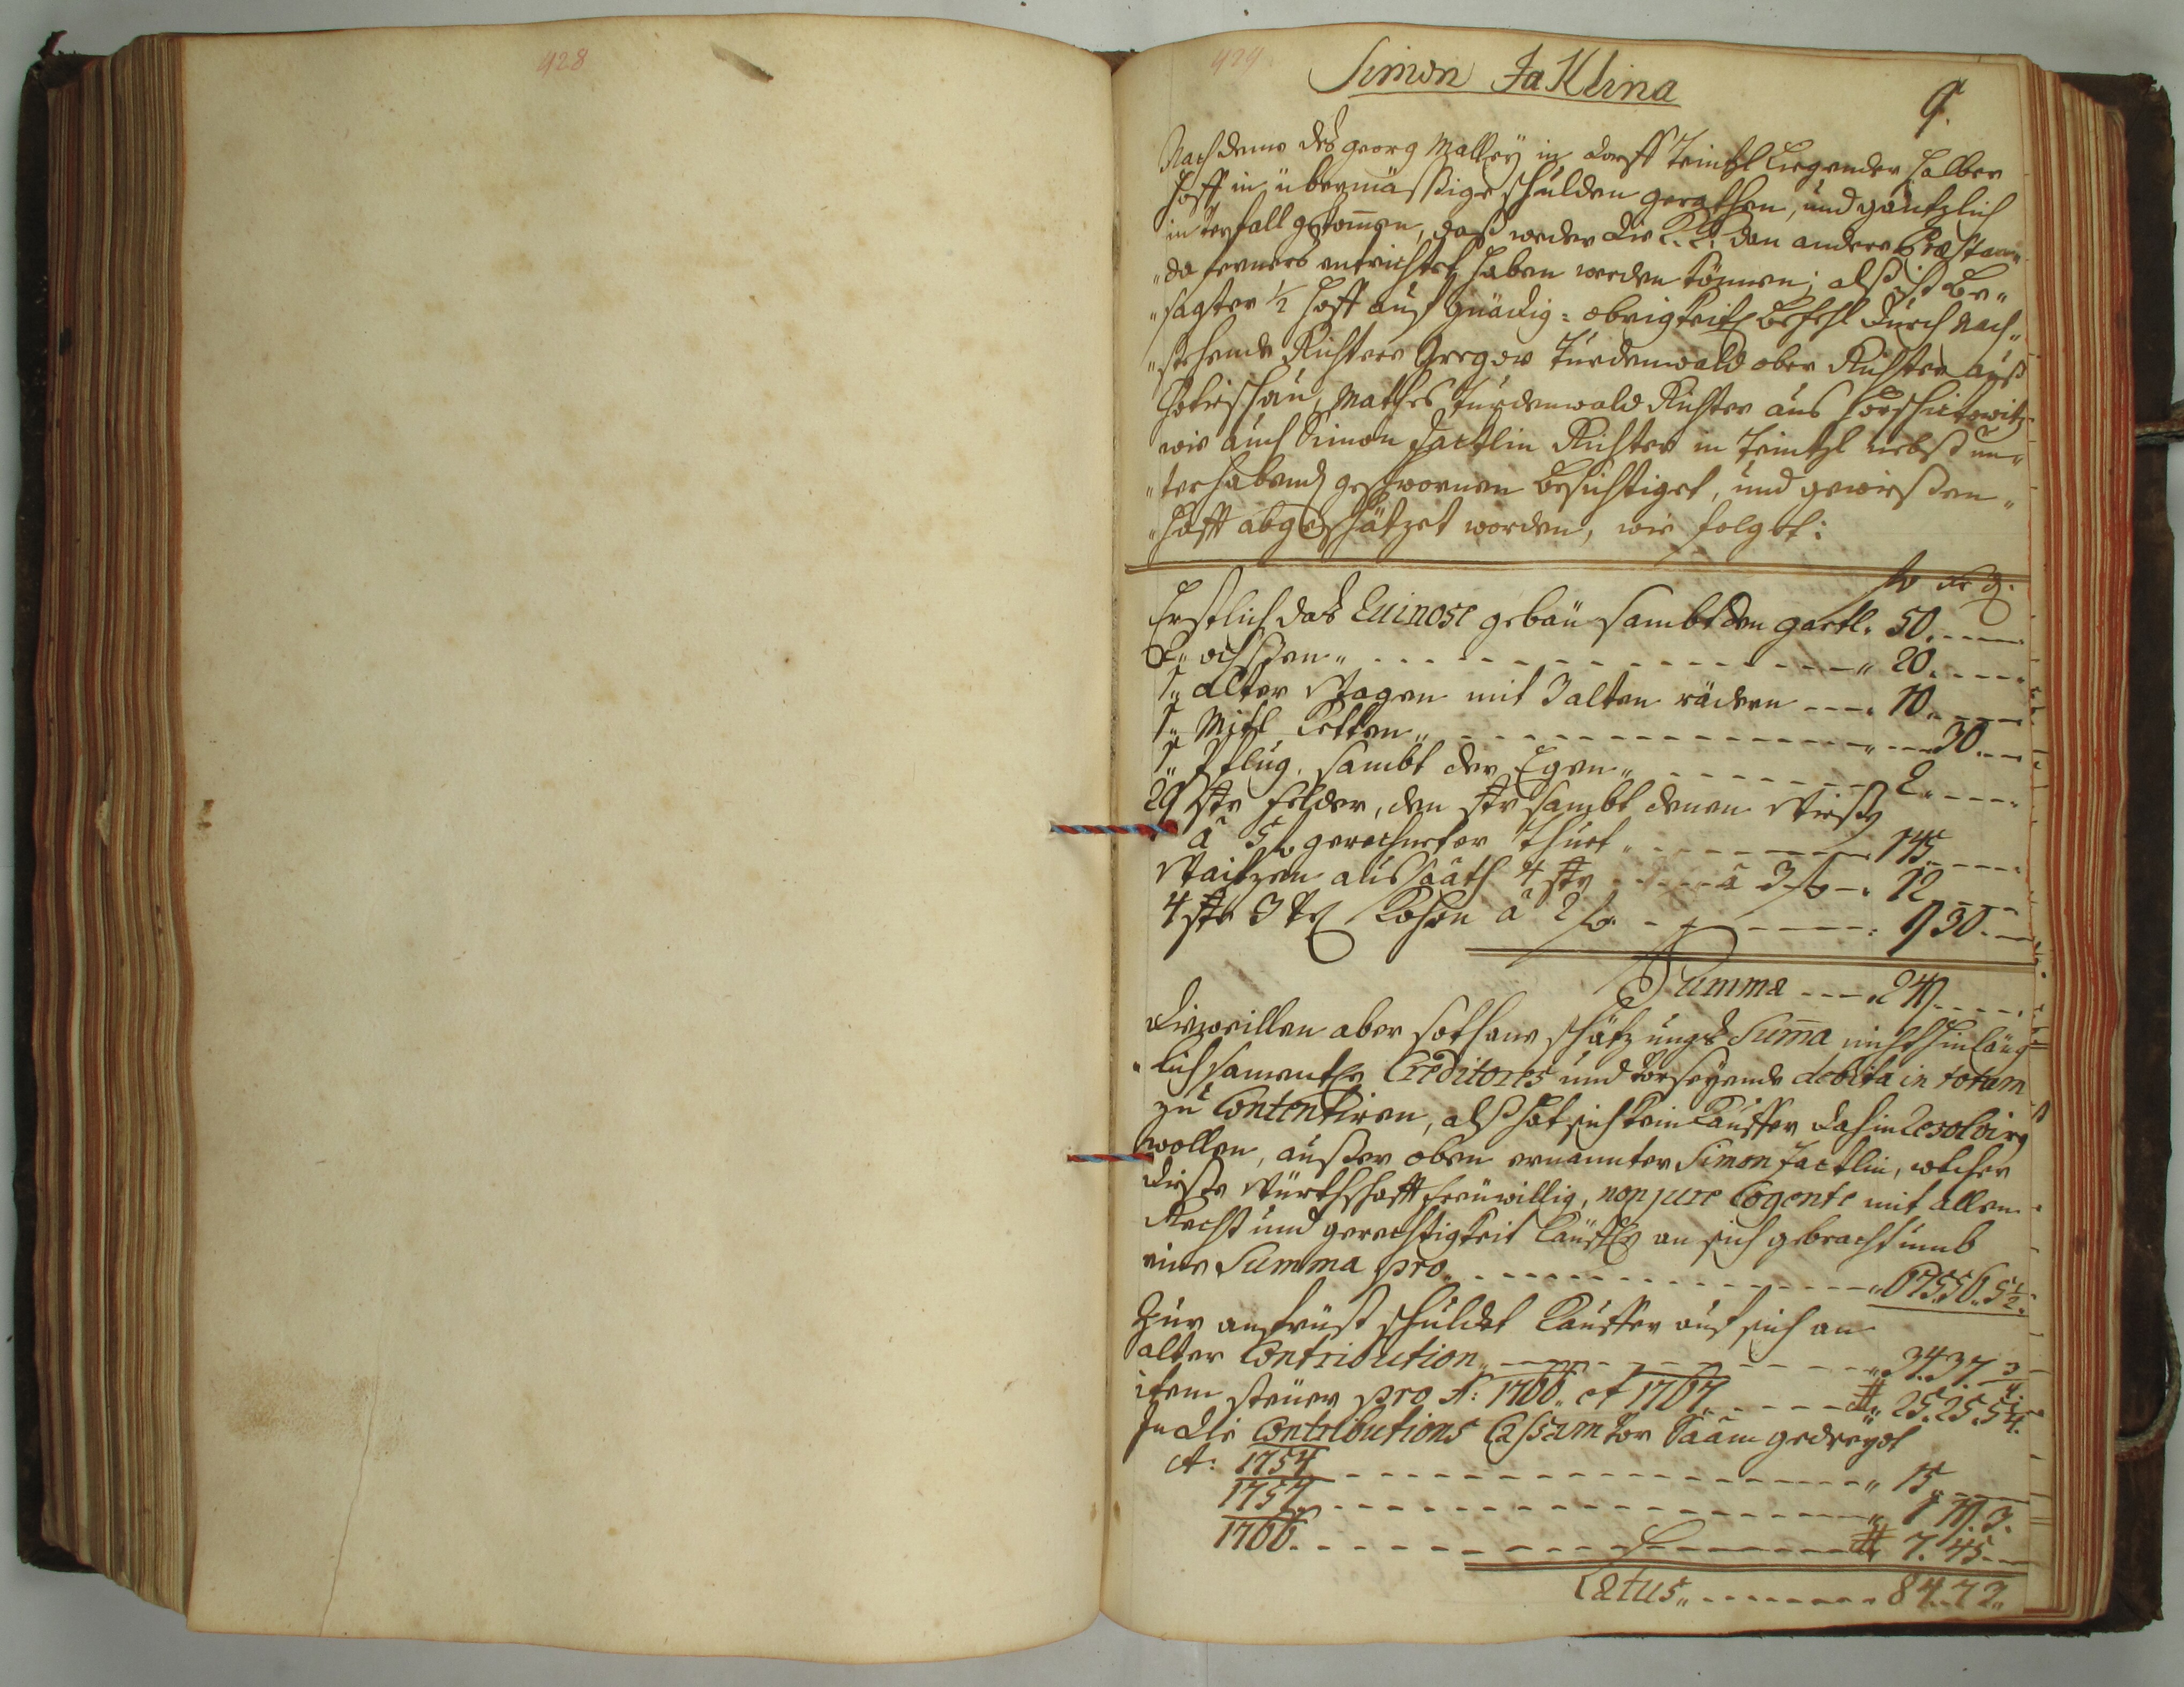 428
429
Simon JaKlina
9.
Nach deme des georg Malleÿ in dorff Teintzl liegender halber
Hoff in übermässige schulden gerathen, und gäntzlich
in verfall gekommen, daß weder die k. k. dan andere Præstan„
„da ferners entrichtet haben werden können; alß ist be„
„sagter 1/2 Hoff auf gnädig: obrigkeitl befehl durch nach„
„stehende Richtere Gregor Türdenwald ober Richter auß
Mathes Türdenwald Richter aus
wie auch Simon Jacklin Richter in Teintzl nebst un„
„terhabend geschwornen besichtiget, und gewissen„
„hafft abgeschätzet worden, wie folget:
fl xr d.
Erstlich das gebäu sambt den gartl. 50.
2„ ochssen„ 20.
1„ alter Wagen mit 3 alten rädern 10.
1„ Mitl Ketten„ 30.
1„ Pflug, sambt der Egen„ 2.
29 str felder, den str sambt denen Wiesen
à 5 fl gerechneter thuet„ 145
Waitzen aussaath 4 str à 3 fl 12
4 str 3 Khorn à 2 fl. 9 30.
Summa 249.
dieweillen aber sothane schätzungs Suma nicht hinläng
„lich samentl Creditores und vorseyende debita in totum
zu Contentiren, alß hat sich kein Kauffer dahin resolvirn
wollen, ausser oben ernannter Simon Jacklin, welcher
diese Würthschafft freywillig, non jure Cogente mit allem
Recht und gerechtigkeit käuffl an sich gebracht umb
eine Summa pro 675.56.5 1/2.
Zur anfrist schuldet Kauffer auf sich an
alter Contribution„ 34.37. 3/4
item steüer pro A: 1766. et 1767„ 25.25.5 1/4.
In die Contributions Cassam vor Saam gedreyd
A: 1754 15.
1757 1 19.3.
1766. 7.45.
Latus„ 84.7 3.